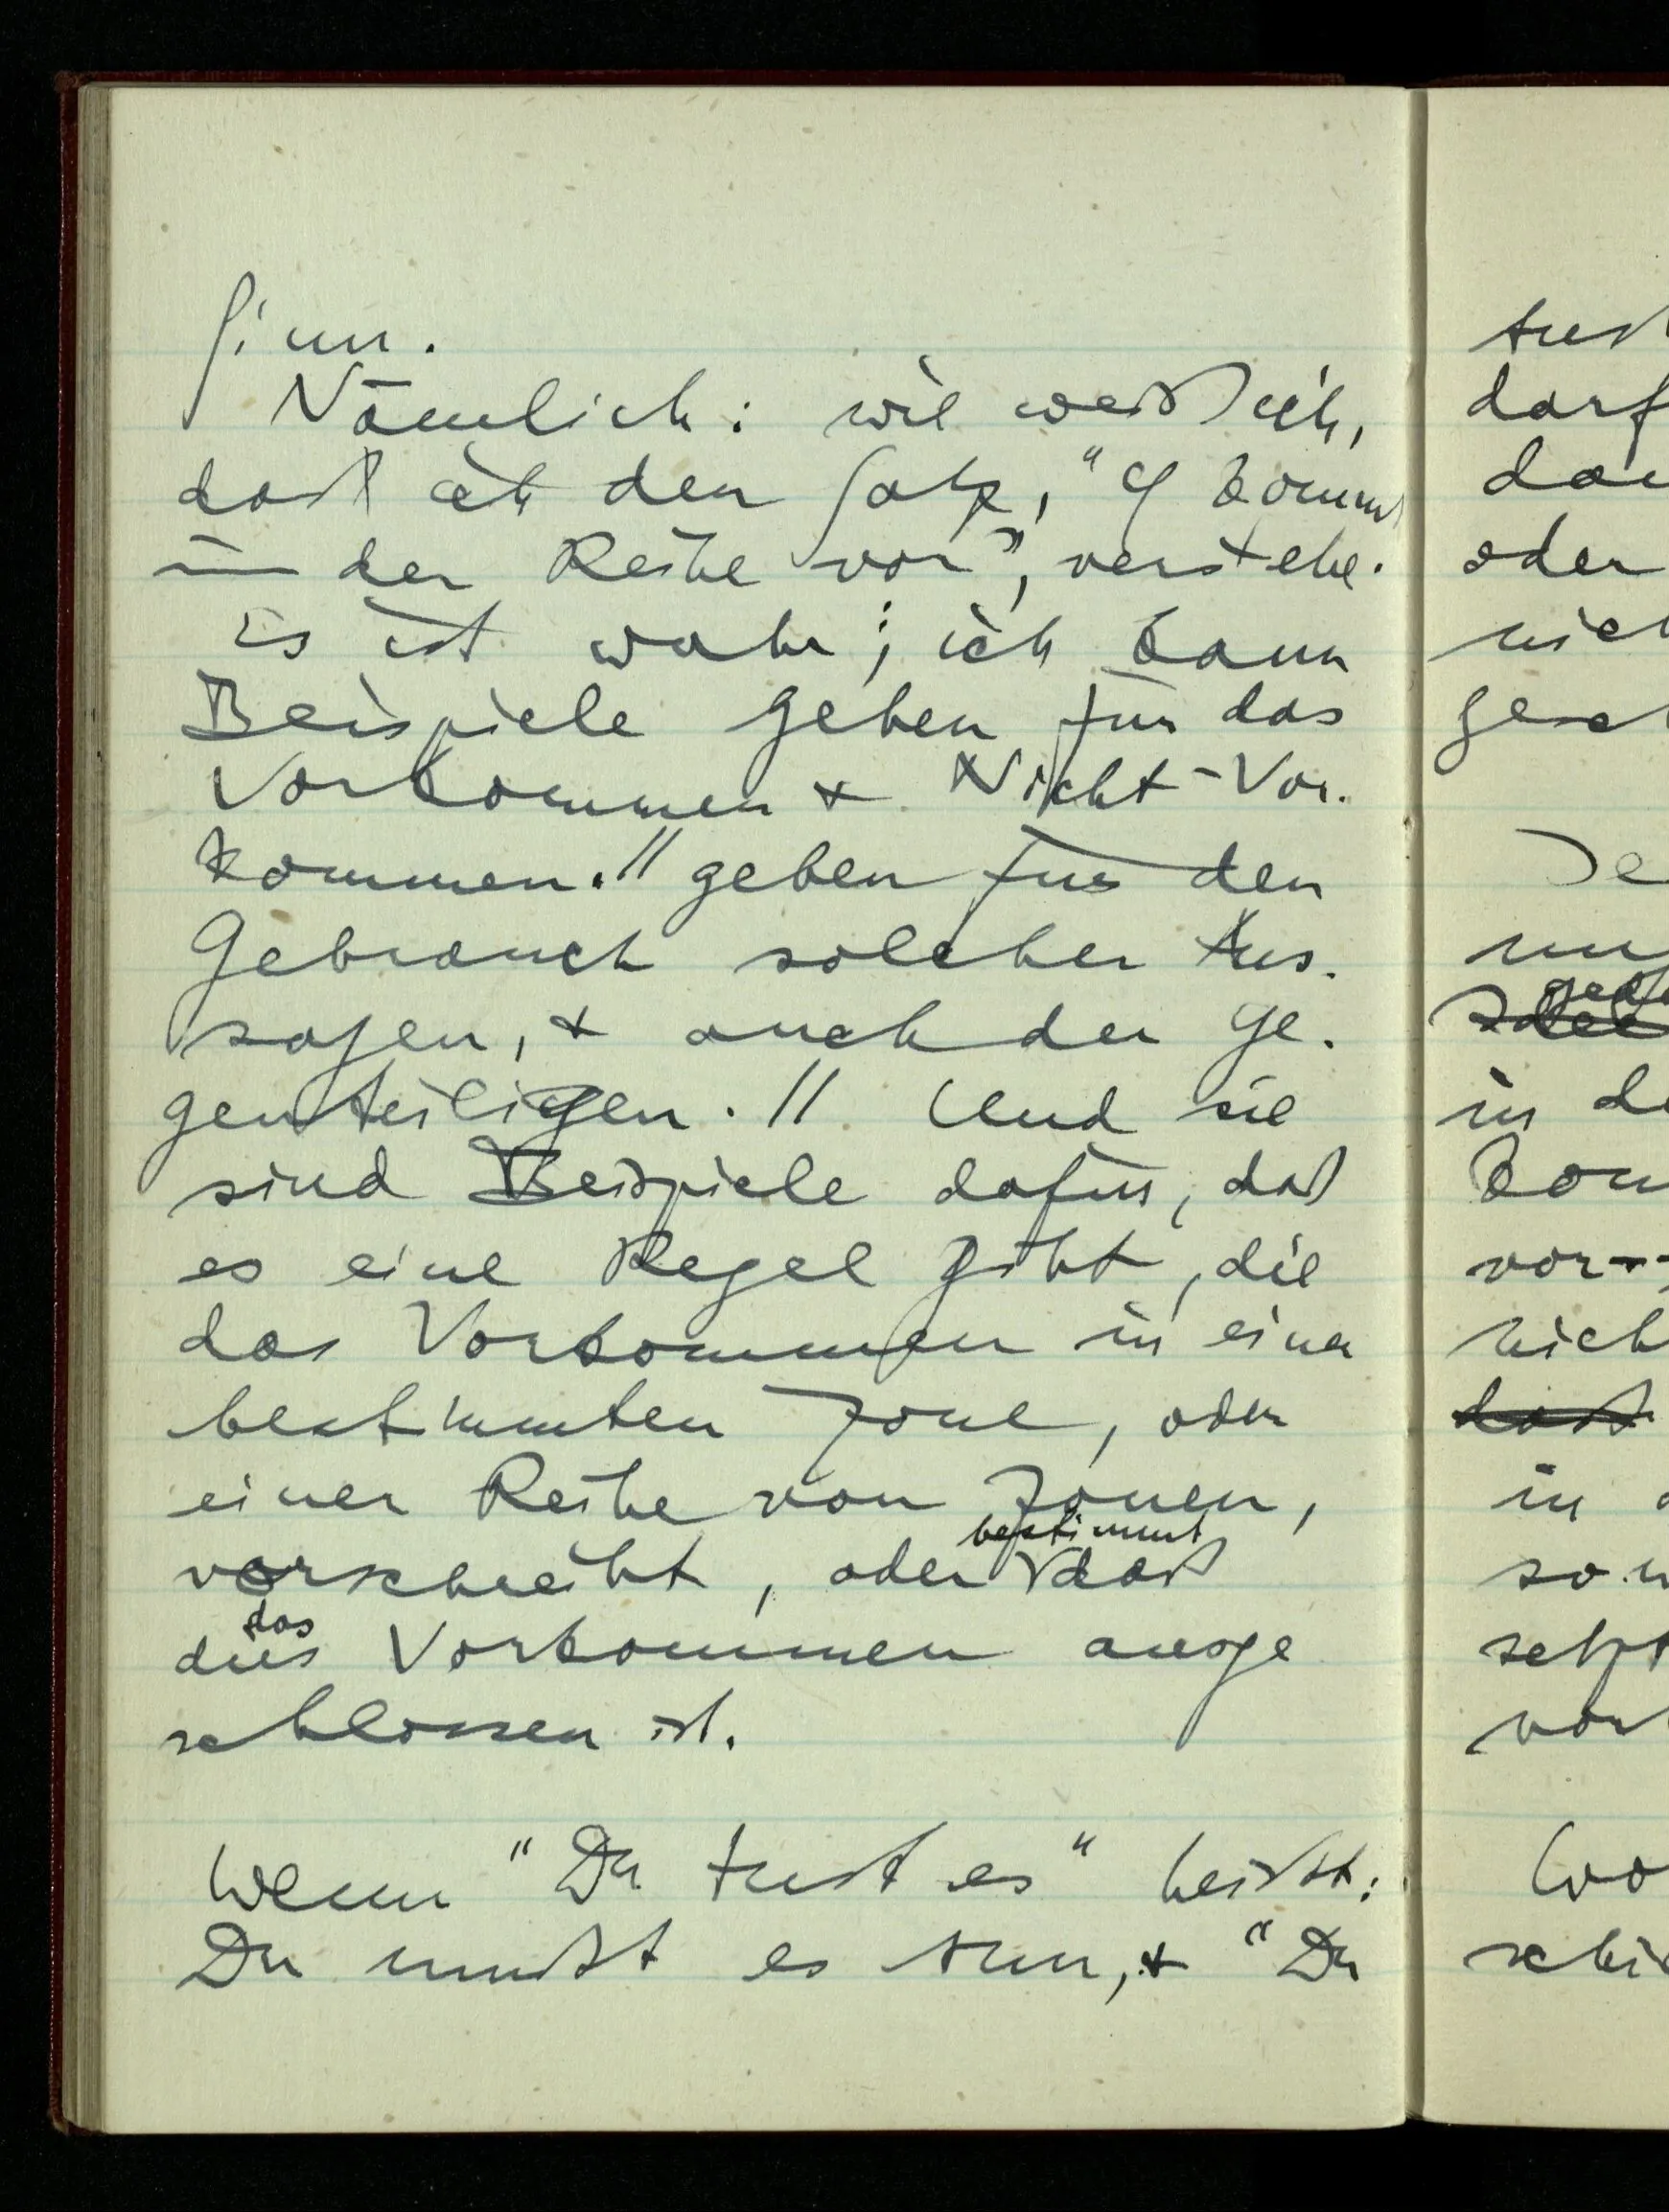 Sinn.
Nämlich: wie weiß ich,
daß ich den Satz, "φ kommt
in der Reihe vor", verstehe.
Es ist wahr; ich kann
Beispiele geben für das
Vorkommen & Nicht-Vor-
kommen. // geben für den
Gebrauch solcher Aus-
sagen, & auch der ge-
genteiligen. // Und sie
sind Beispiele dafür, daß
es eine Regel gibt, die
das Vorkommen in einer
bestimmten Zone, oder
einer Reihe von Zonen,
bestimmt
vorschreibt, oder daß
das
dies Vorkommen ausge
schlossen ist.
Wenn "Du tust es" heißt:
Du mußt es tun, & "Du
tust
darf
oder
nich
in